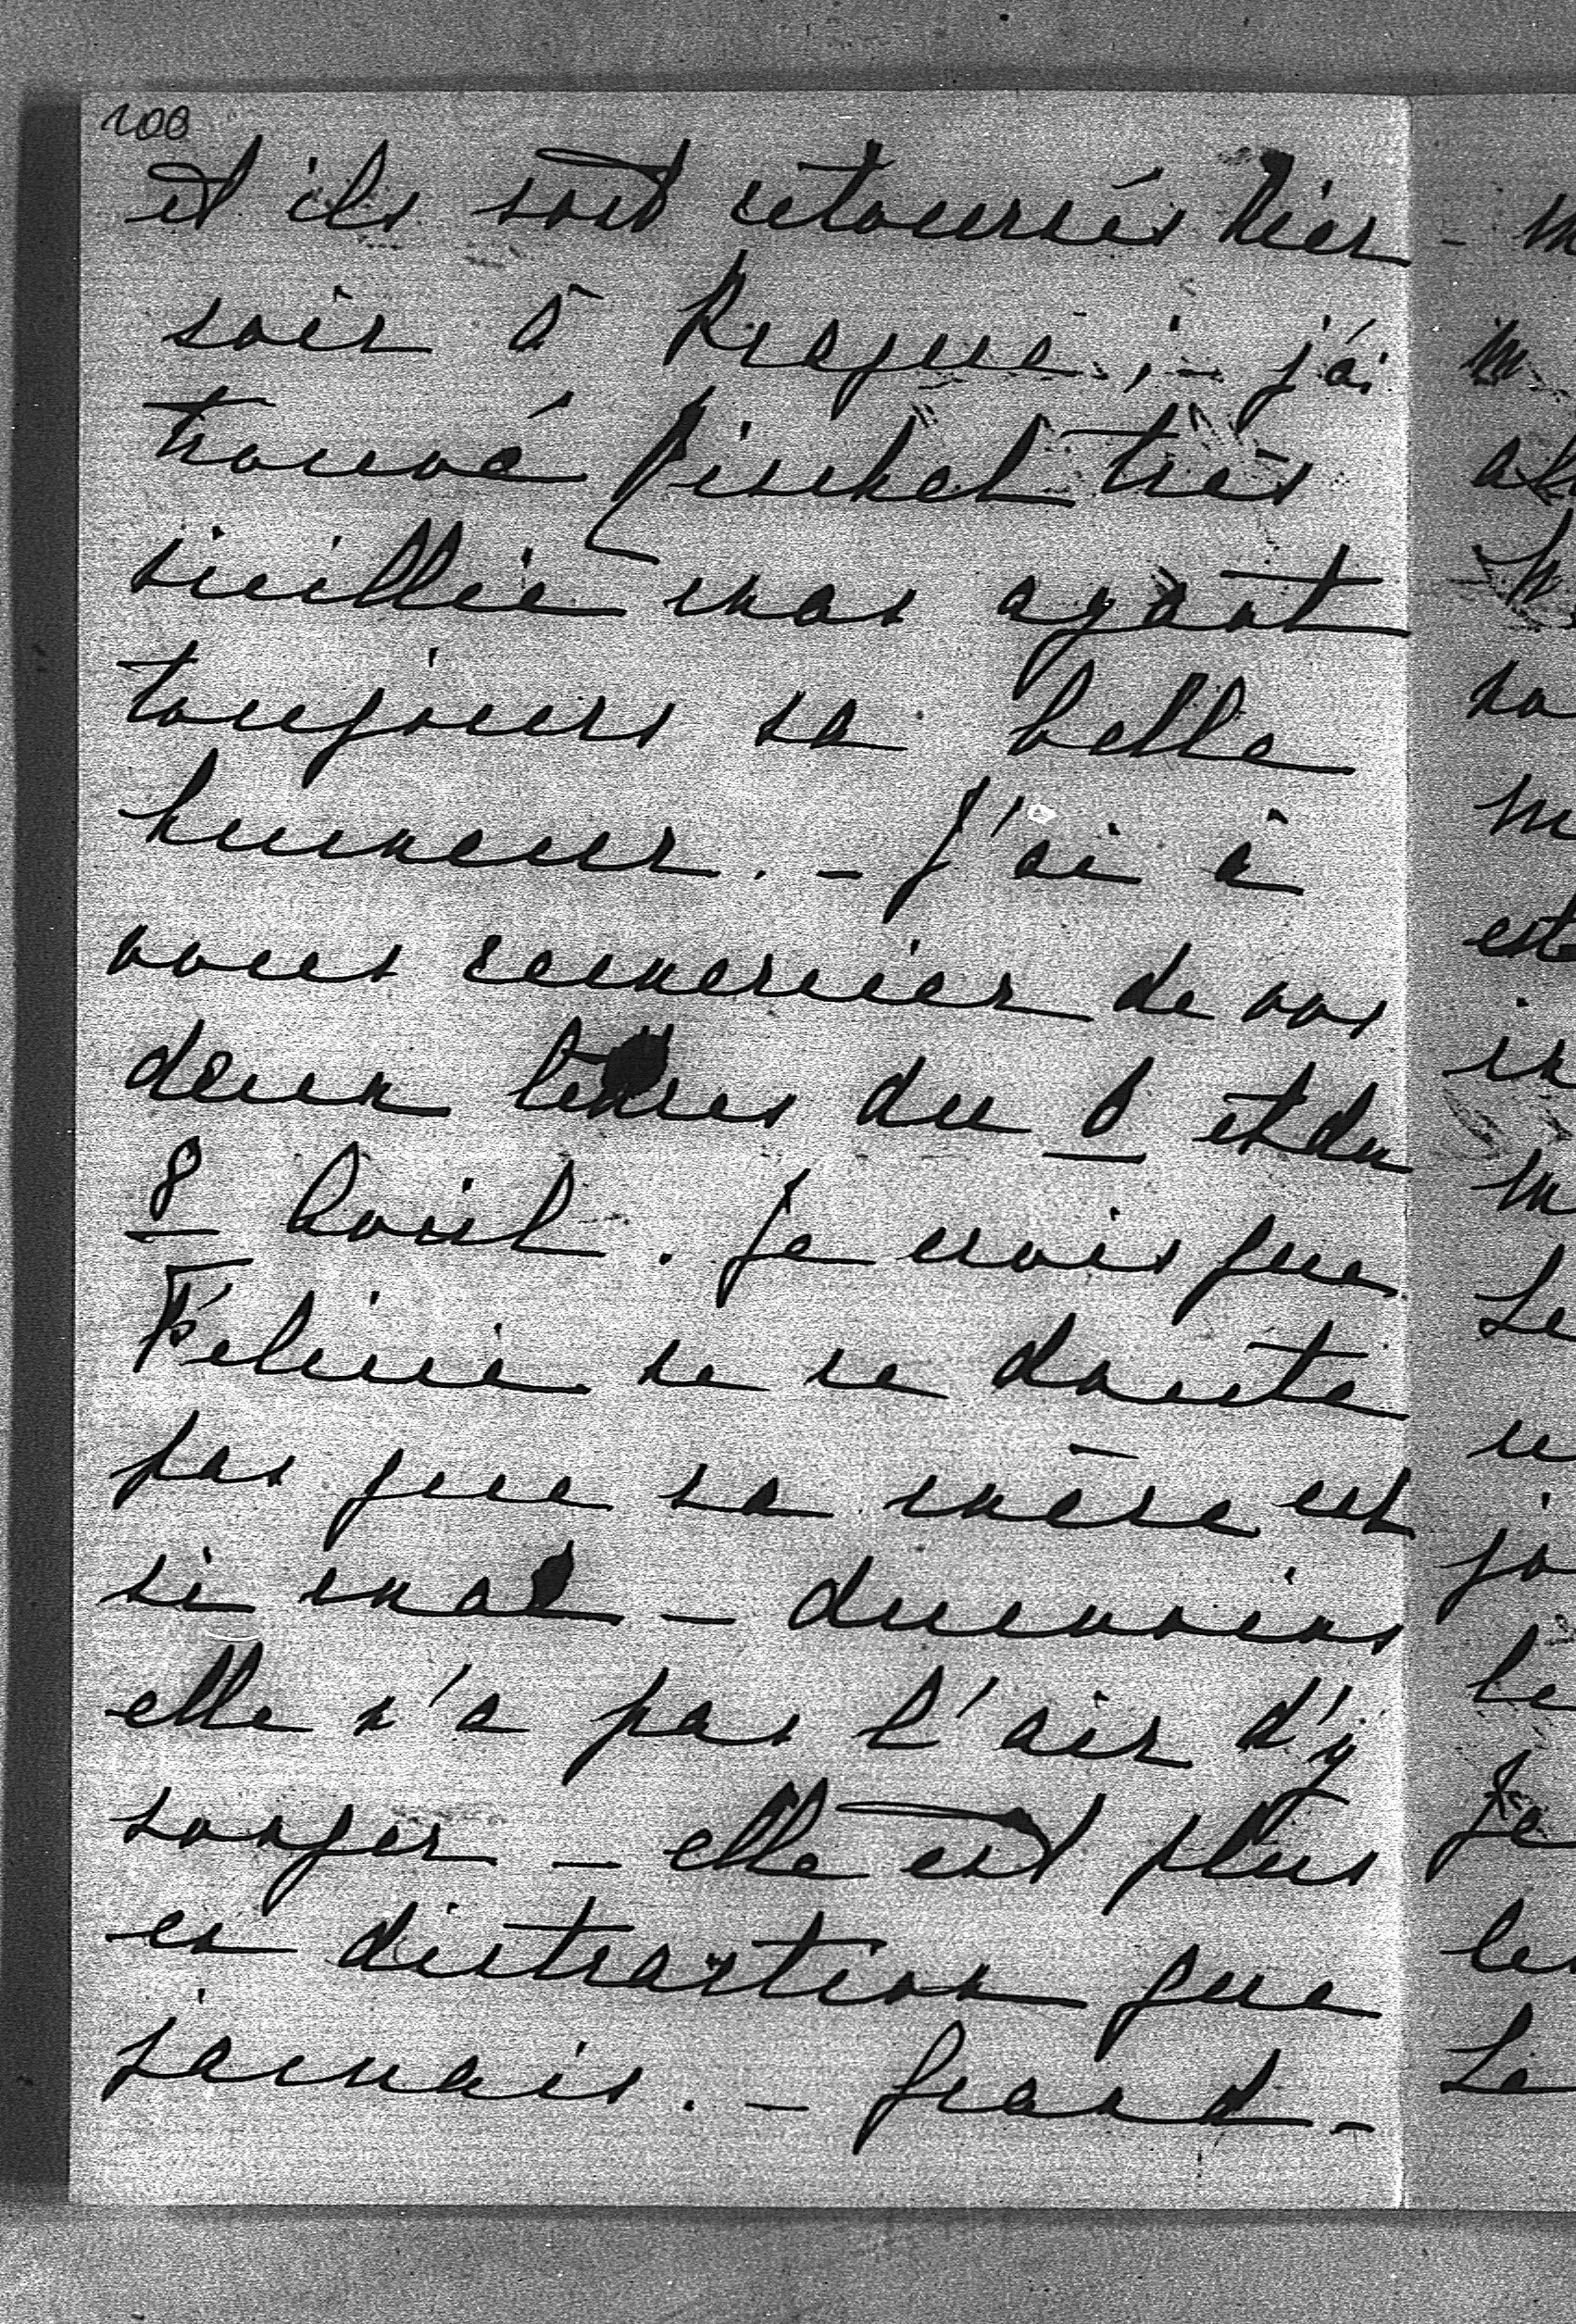 100
et ils sont retournés hier
soir à Prague; - j'ai
trouvé Fischel très
vieillie mas ayant
toujours sa belle
humeur. - J'ai à
vous remercier de vos
deux lettres du 6 et du
8 Août. Je crois que
Félicie ne se doute
pas que sa mère est
si mal - dumoins
elle n'a pas l'air d'y
songer - elle est plus
en distraction que
jamais. - Grand-